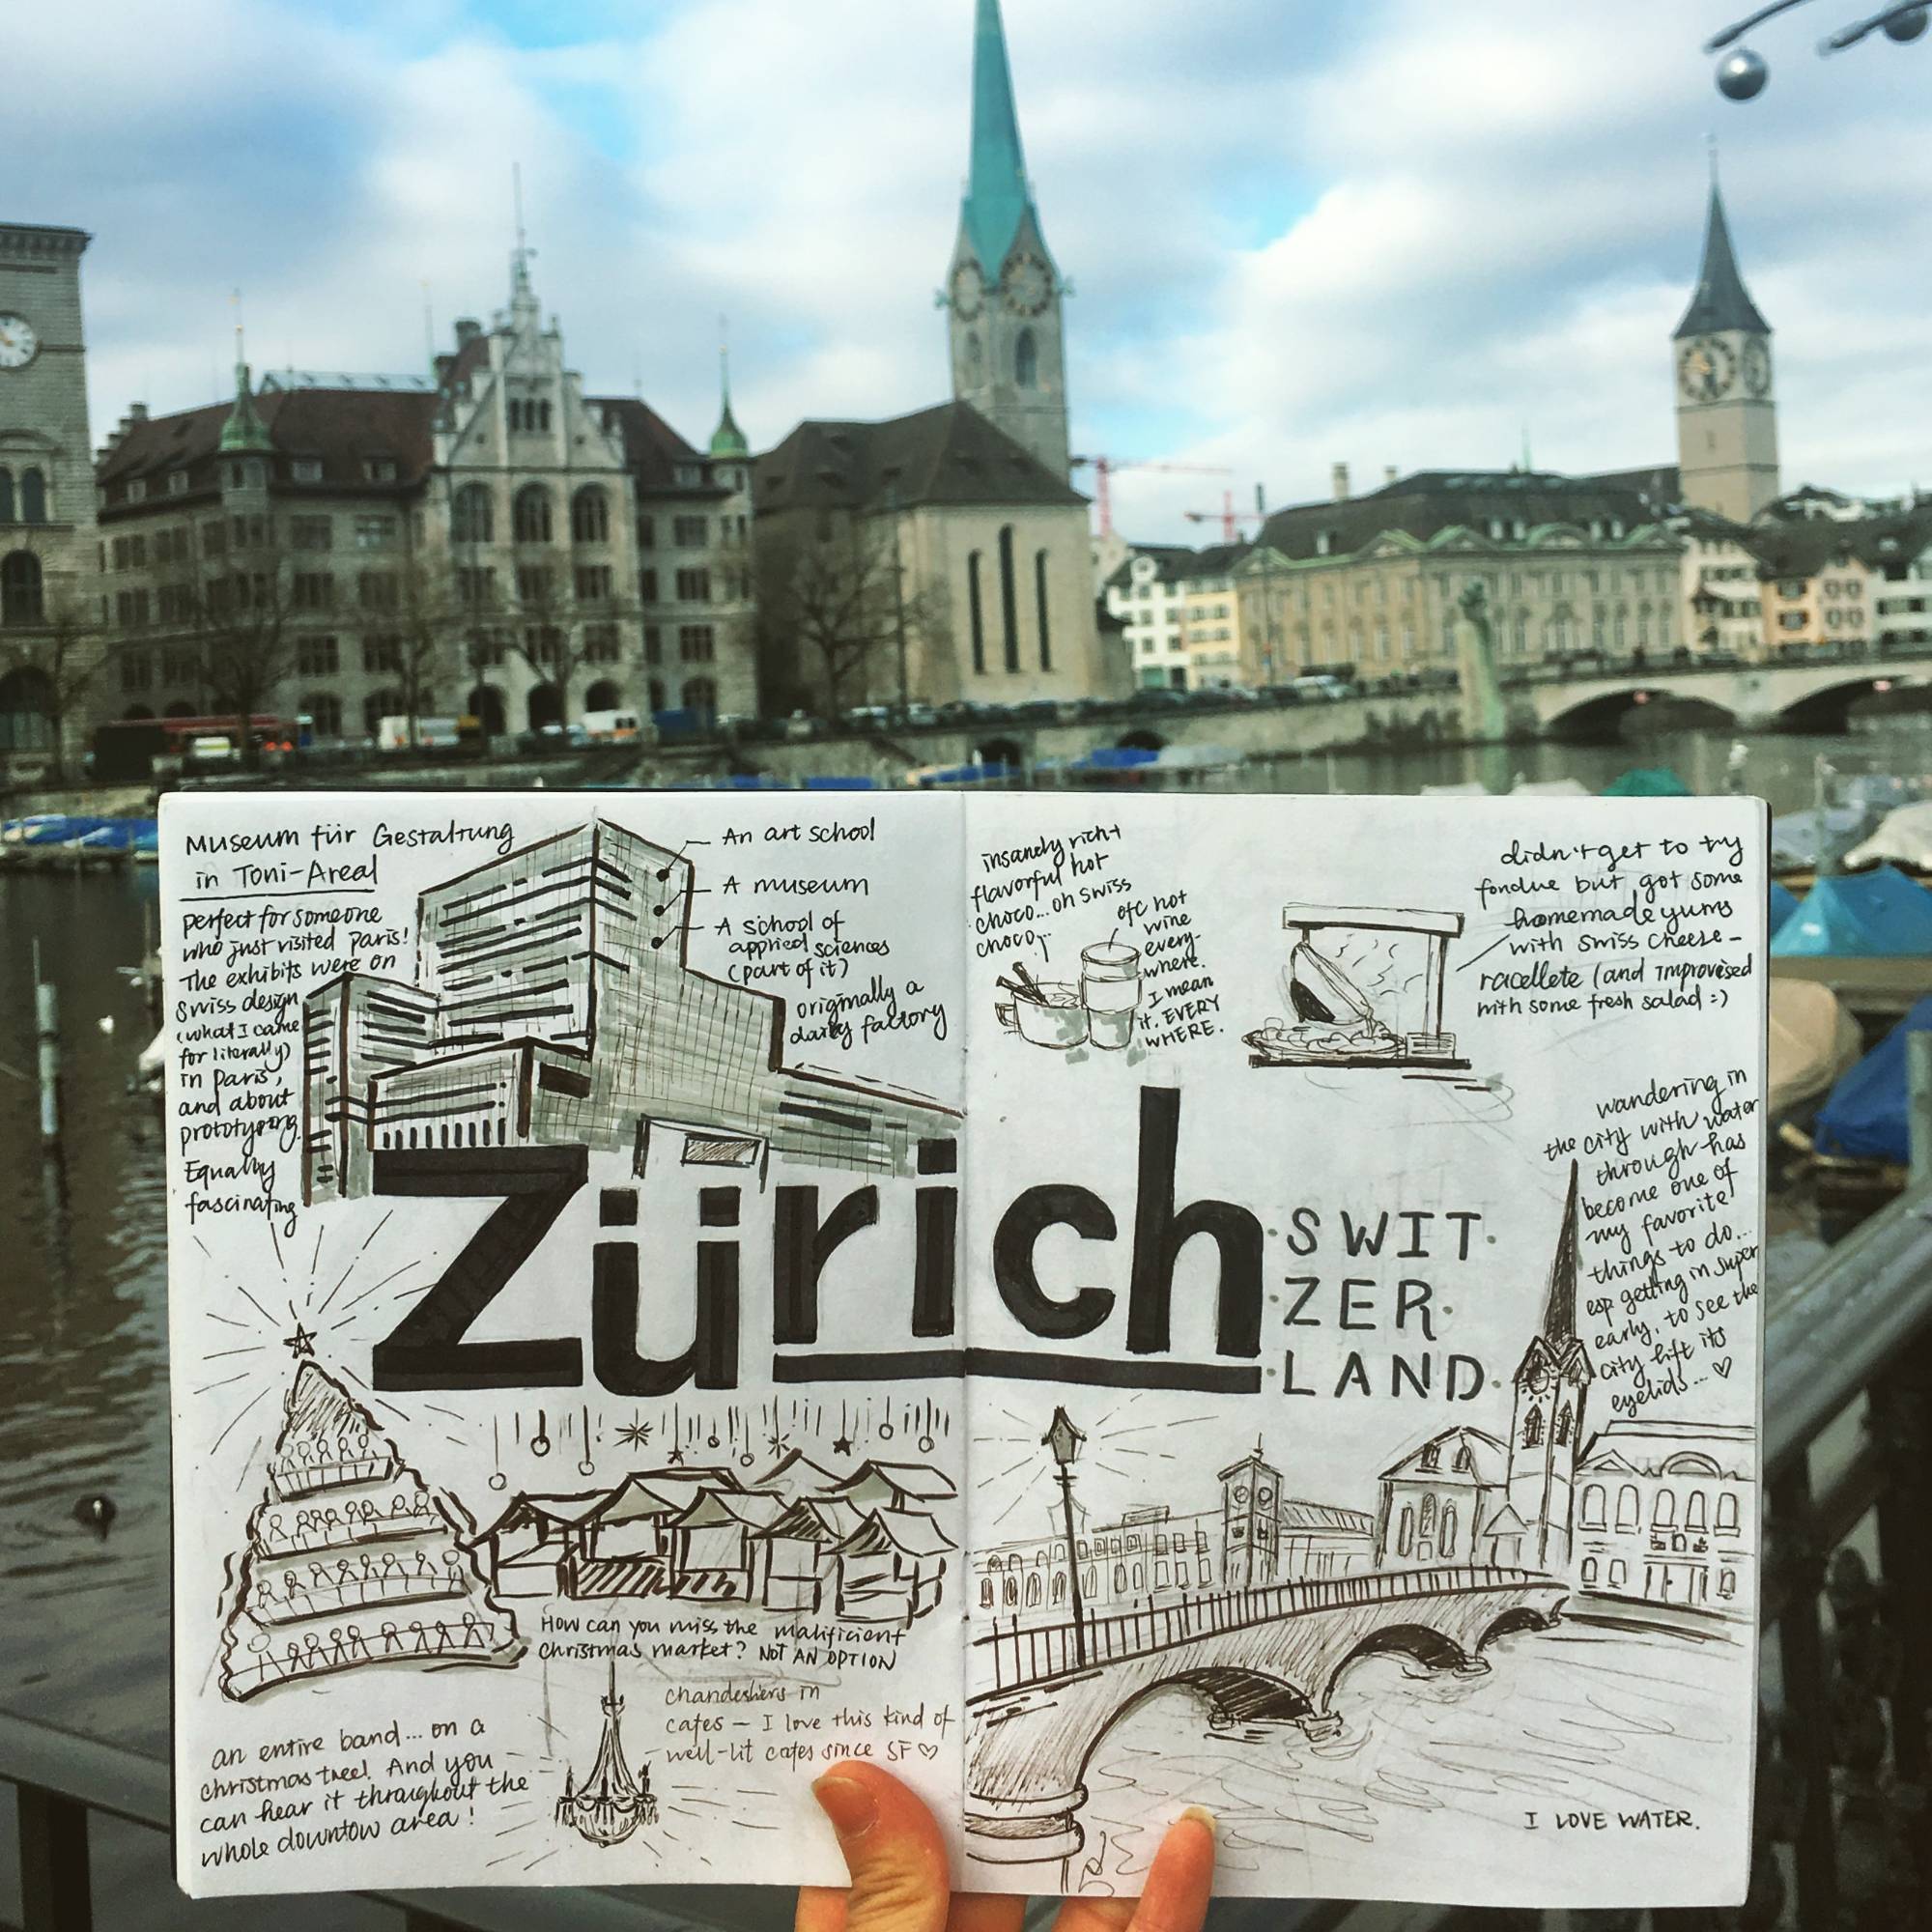 Museum für Gestaltung
in Toni-Areal
perfect for someone
who just visited Paris!
The exhibits were on
Swiss design
(what I came
for literally)
in Paris,
and about
prototyping.
Equally
fascinating
An art school
A museum
A school of
applied sciences
(part of it)
originally a
dairy factory
insanely rich+
flavorful hot
choco... oh swiss
choco~
ofc hot
wine
every-
where.
I mean
it. EVERY
WHERE.
didn't get to try
fondue but got some
homemade yums
with swiss cheese-
racellete (and improvised
with some fresh salad :)
Zürich
SWIT
ZER
LAND
wandering in
the city with water
through has
become one of
my favorite
things to do...
esp getting in super
early, to see the
city lift its
eyelids... ♡
How can you miss the malificient
christmas market? NOT AN OPTION
chandeliers in
cafes — I love this kind of
well-lit cafes since SF ♡
an entire band... on a
christmas tree! And you
can hear it throughout the
whole downtow area!
I LOVE WATER.